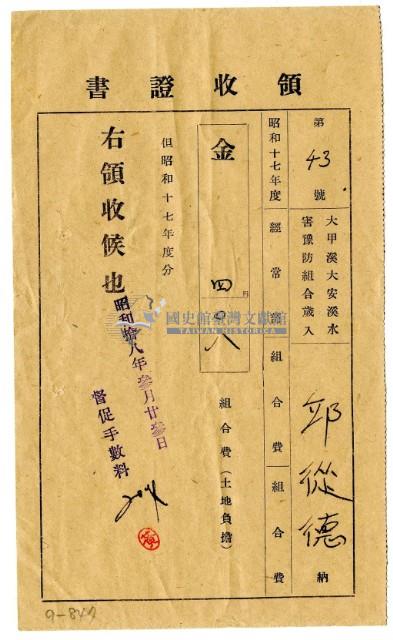 領收證書
第43號
大甲溪大安溪水
害豫防組合歲入
邱從德 納
昭和十七年度
經常部
組合費
組合費
金
四円
組合費(土地負擔)
但昭和十七年度分
右領收候也
昭和拾八年參月廿參日
督促手數料
國史館臺灣文獻館
TAIWAN HISTORICA
9-844